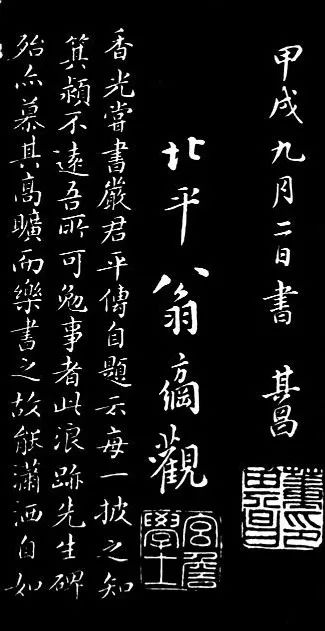 甲戌九月二日書 其昌
董其昌印
宮詹學士
北平翁方綱觀
香光嘗書嚴君平傳自題云每一披之知
箕潁不遠吾所可勉事者此浪跡先生碑
殆亦慕其高曠而樂書之故能瀟洒自如